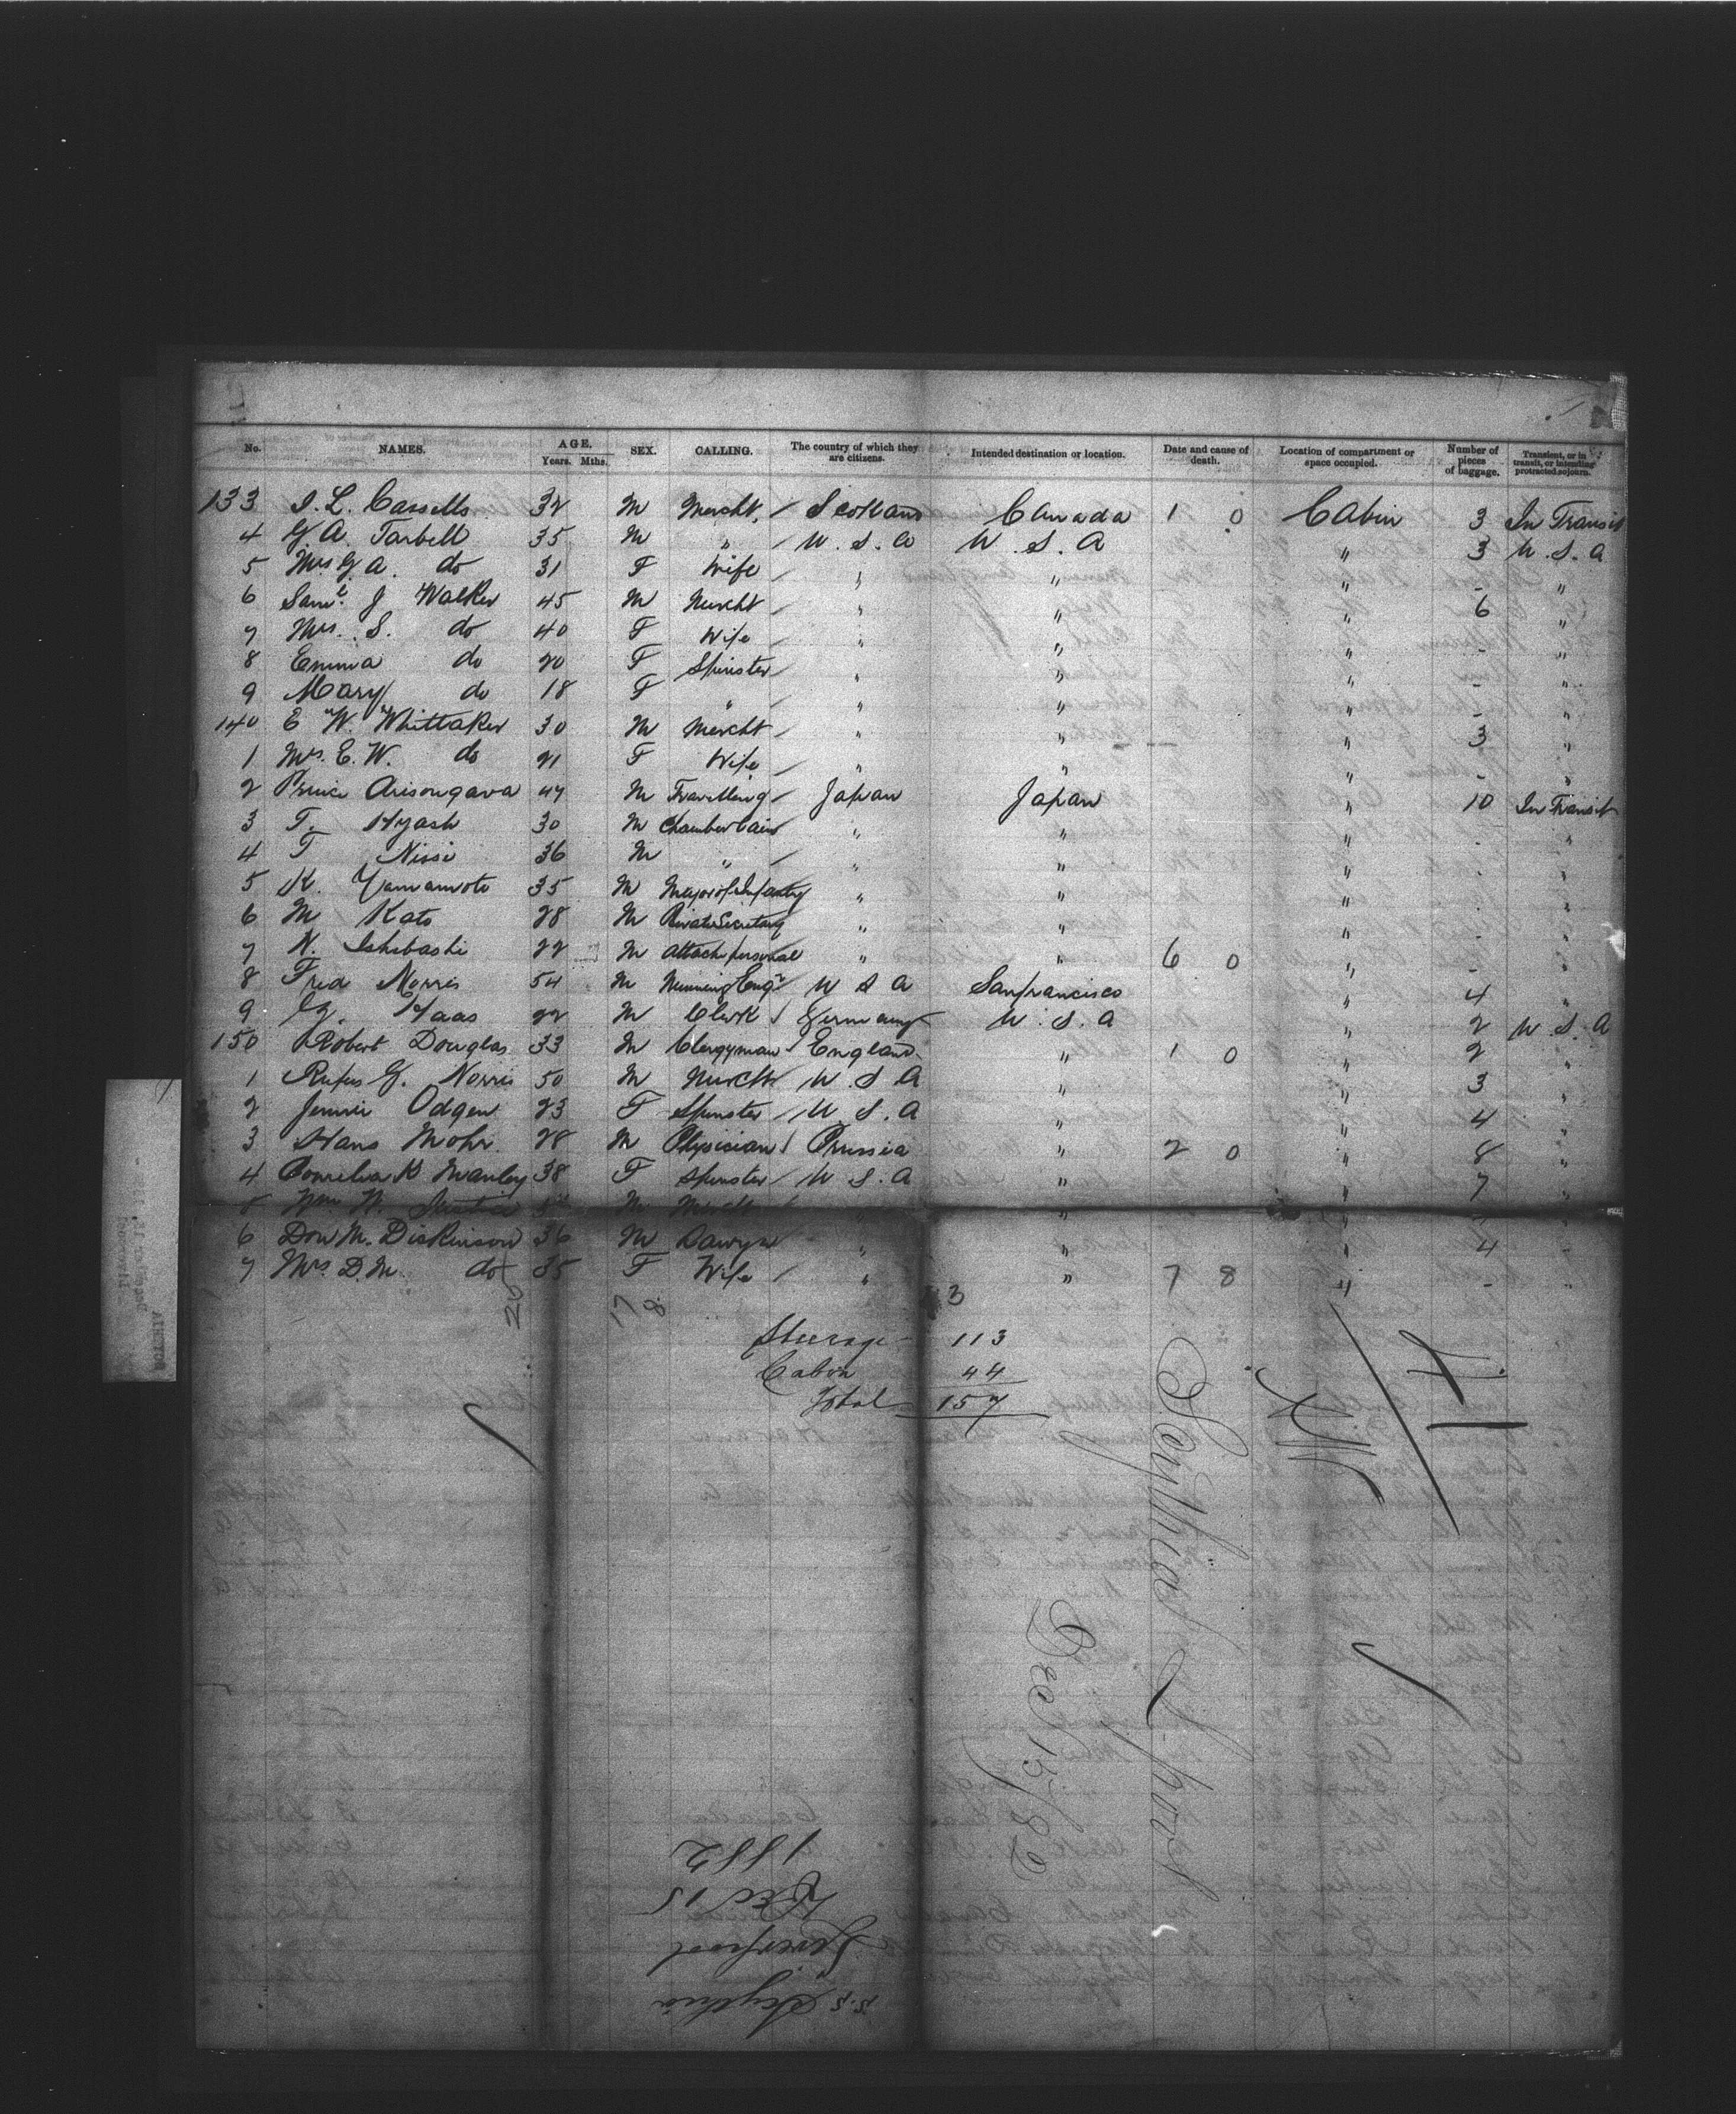 No. NAMES. AGE. Years. Mths. SEX. CALLING. The country of which they are citizens. Intended destination or location. Date and cause of death. Location of compartment or space occupied. Number of pieces of baggage. Transient, or in transit, or intending protracted sojourn.
133 I. L. Cassells 32 M Mercht. / Scotland Canada 1 0 Cabin 3 In Transit
4 G. A. Tarbell 35 M " / U. S. A U. S. A " 3 U. S. A
5 Mrs G A. do 31 F Wife / " " " - "
6 Saml. J Walker 45 M Mercht / " " " 6 "
7 Mrs. S. do 40 F Wife / " " " - "
8 Emma do 20 F Spinster / " " " - "
9 Mary do 18 F " / " " " - "
140 E W. Whittaker 30 M Mercht / " " " 3 "
1 Mrs. E. W. do 21 F Wife / " " " - "
2 Prince Arisongava 47 M Travelling / Japan Japan " 10 In Transit
3 T. Hyash 30 M Chamberlain " " " - "
4 T Nissi 36 M " / " " " - "
5 K. Yamamoto 35 M Major of Infantry " " " - "
6 M Kato 28 M Private Secretary " " " - "
7 N. Ishibashi 22 M Attache personal " " 6 0 " - "
8 Fred Norris 54 M Minning Engr U S A Sanfrancisco " 4 "
9 G. Haas 22 M Clerk / Germany U. S. A " 2 U S A
150 Robert Douglas 33 M Clergyman / England " 1 0 " 2 "
1 Rufus G. Norris 50 M Mercht / U. S A " " 3 "
2 Jennie Odgen 23 F Spinster / U. S. A " " 4 "
3 Hans Mohr 28 M Physician / Prussia " 2 0 " 8 "
4 Cornelia K Manley 38 F Spinster / U S. A " " 7 "
5 Wm W. M "
6 Don M. Dickinson 36 M Lawyer " " " 4 "
7 Mrs. D. M. do 35 F Wife / " " 7 8 " -
20 17 8 3
Steerage 113
Cabin 44
Total 157
Scythia L.pool
Dec 15/82
S.S. Scythia
Liverpool
Dec 15
1882